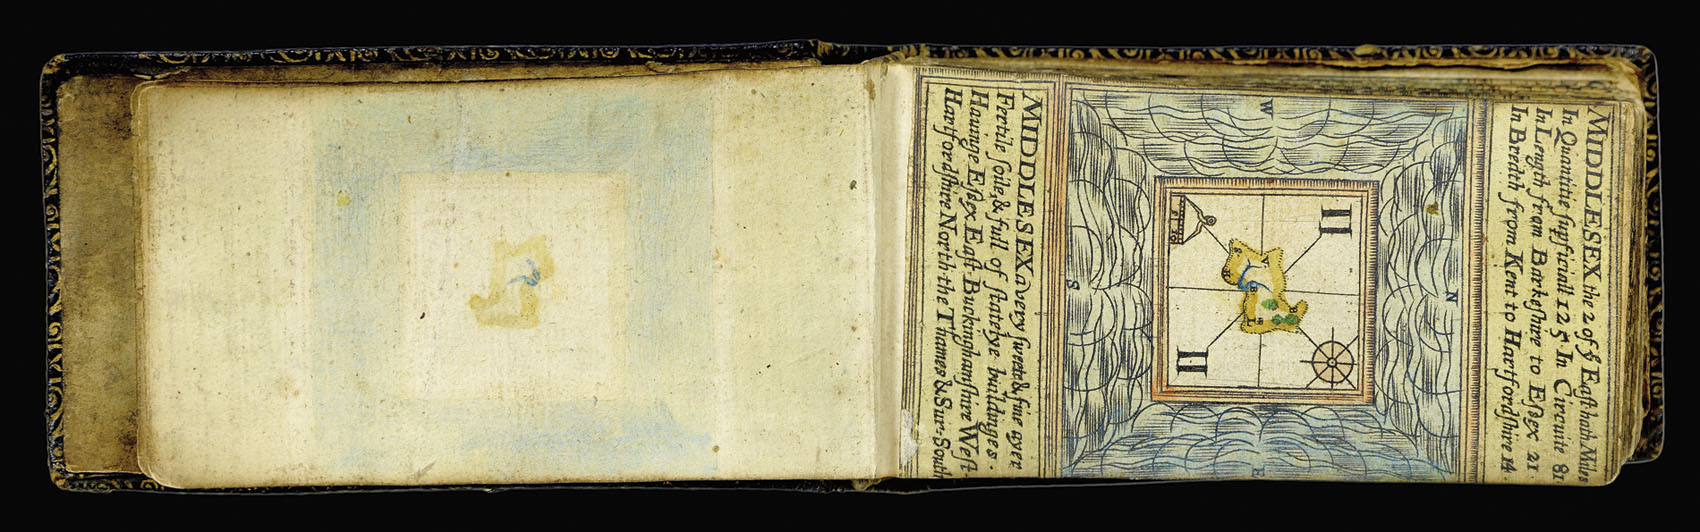 MIDDLESEX the 2 of yͤ East hath Miles
In Quantitie supficiall 125 In Circuite 81
In Length from Barkeshire to Eſsex 21.
In Bredth from Kent to Hartfordſhire 14.
W
N
S
E
II
II
MIDDLESEX a very ſweete & fine ayer
Fertile ſoile, & full of ſtatelye buildinges.
Hauinge Eſsex Eaſt Buckinghamſhire Weſt-
Hartfordſhire North the Thames & Sur=South